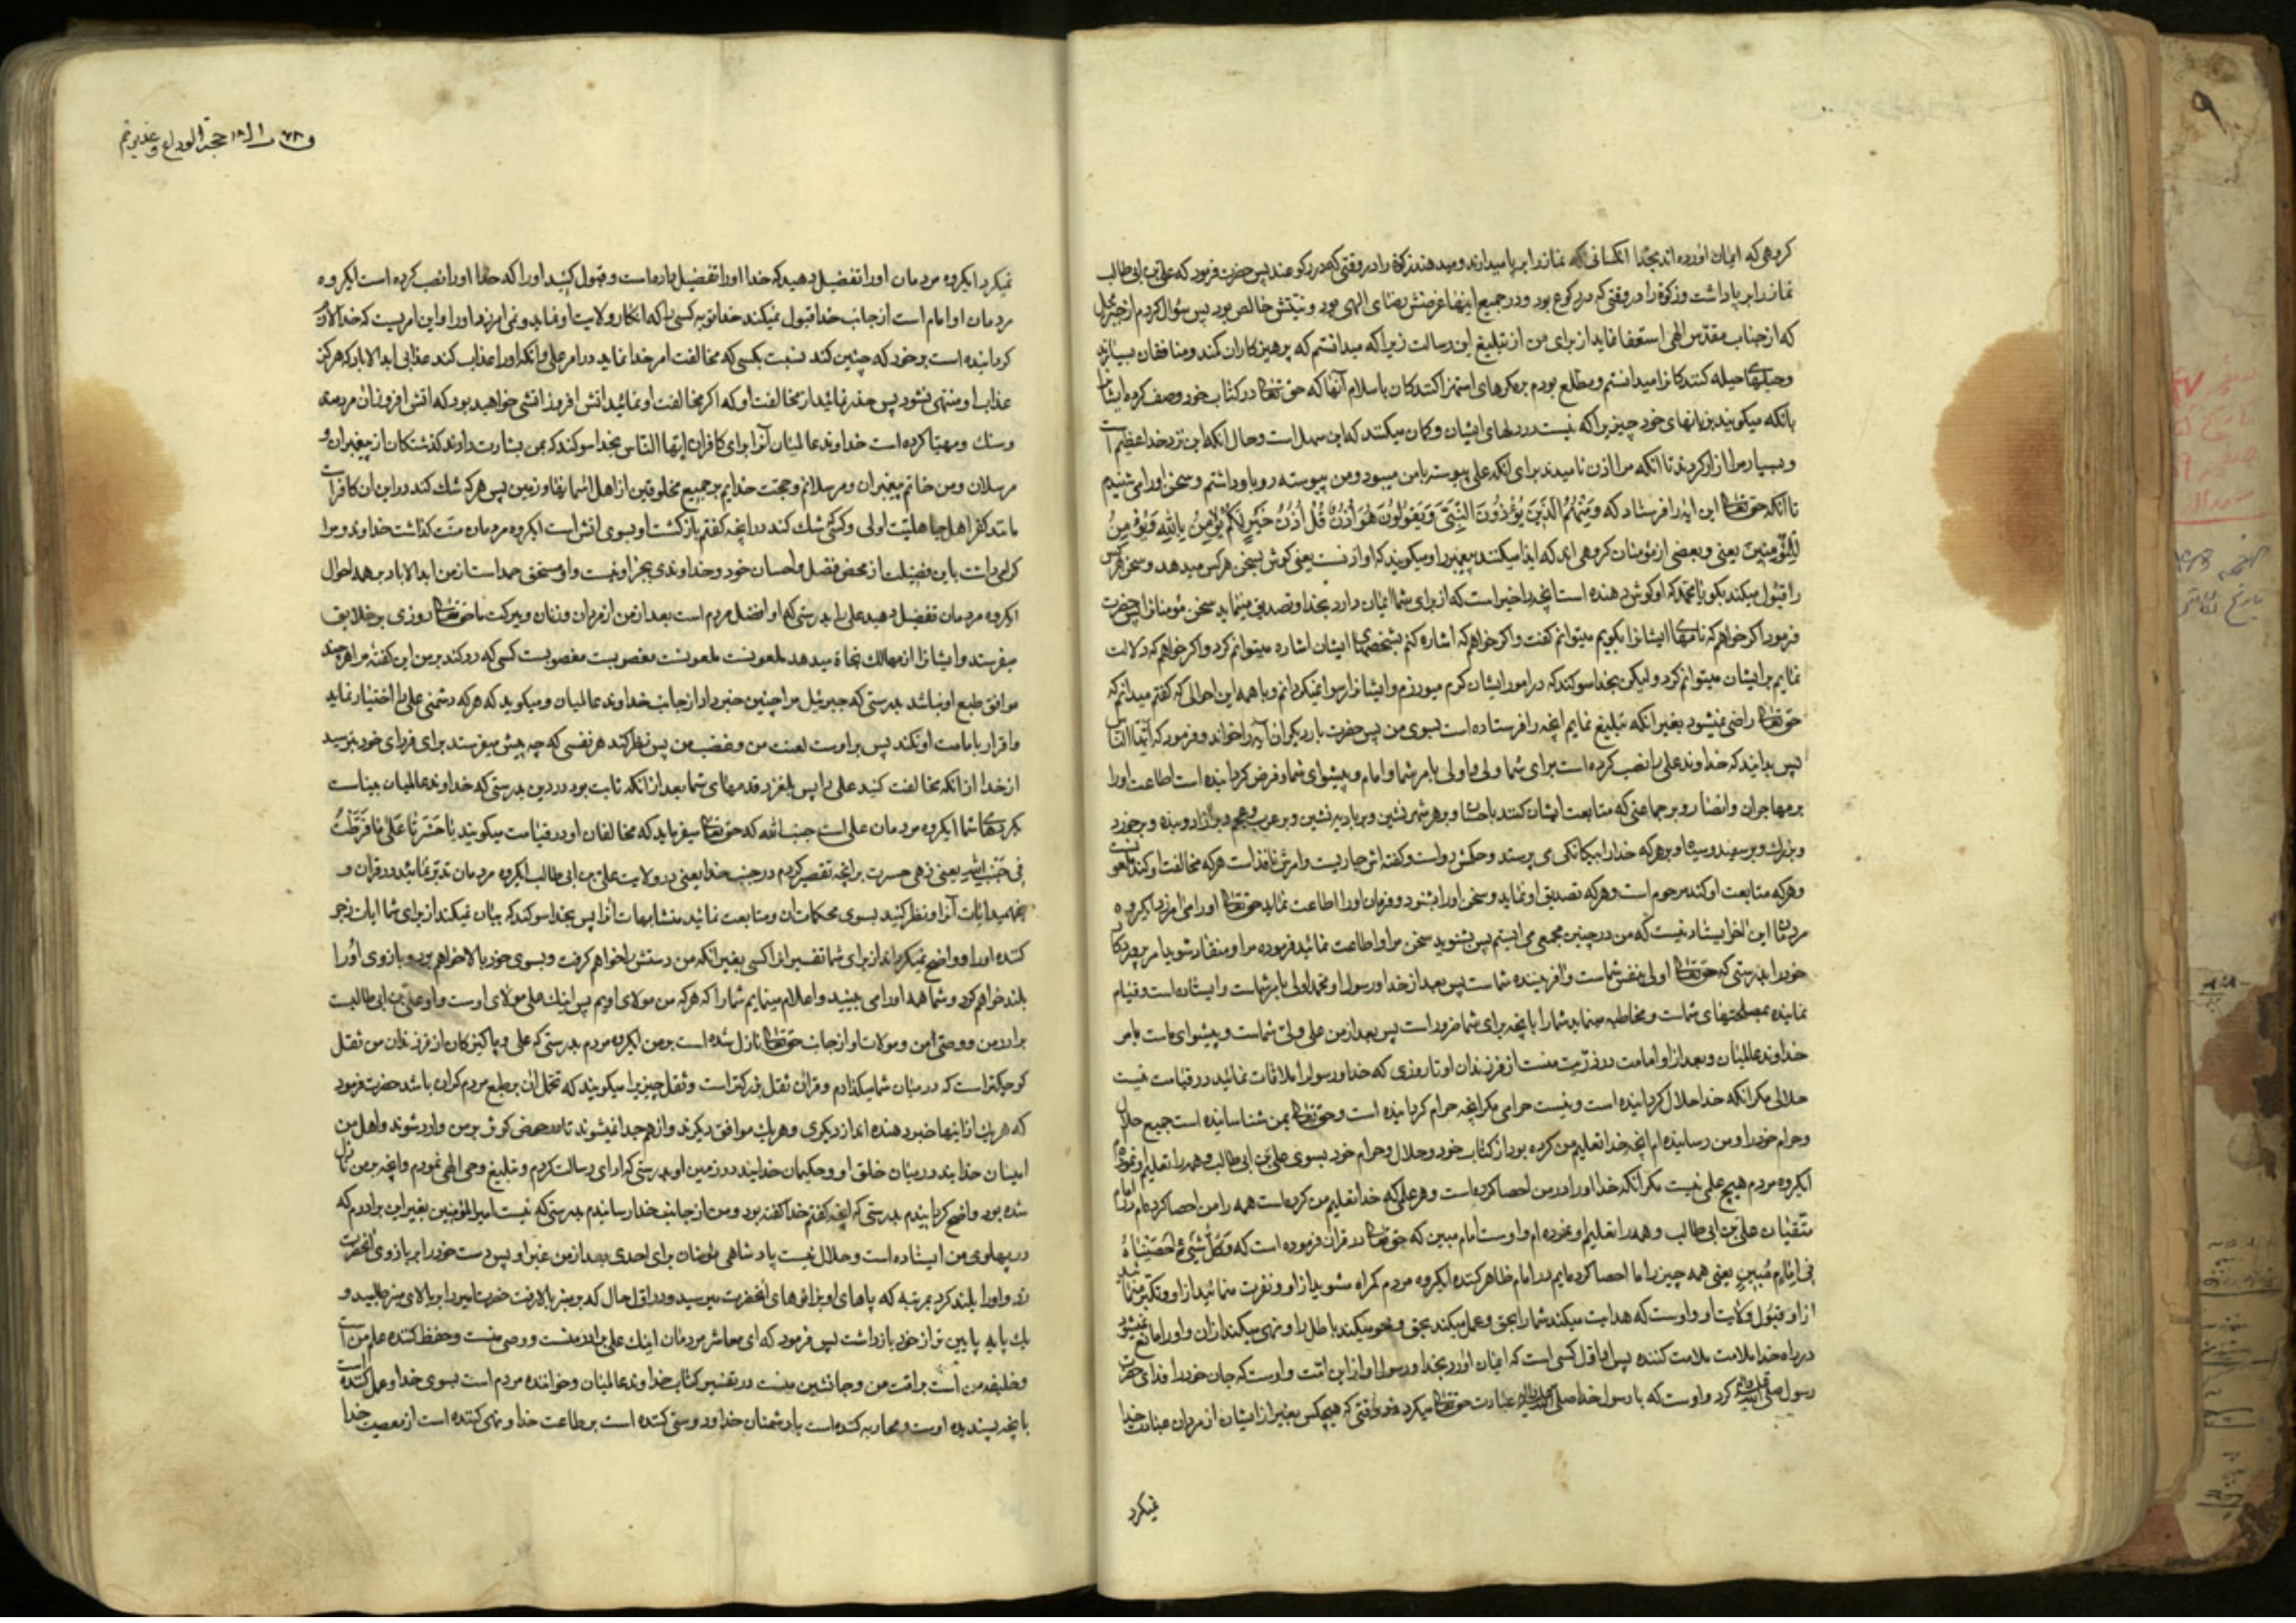 گروهی که ایمان آورده‌اند بخدا آنکسانی که نماز را برپا میدارند و میدهند زکوة را در وقتی که در رکوعند پس حضرت فرمود که علی بن ابی طالب
نماز را برپا داشت و زکوة را در وقتی که در رکوع بود و در جمیع اینها غرضش رضای الهی بود و نیتش خالص بود پس سؤال کردم از جبرئیل
که از جناب مقدّس الهی استعفا نماید از برای من از تبلیغ این رسالت زیرا که میدانستم که پرهیزکاران کمند و منافقان بسیارند
و حیلهای حیله کنندکانرا میدانستم و مطلع بودم بر مکرهای استهزا کنندکان باسلام آنها که حق تعالی در کتاب خود وصف کرده ایشانرا
بانکه میکویند بزبانهای خود چیزیرا که نیست در دلهای ایشان و کمان میکنند که این سهل است و حال انکه این نزد خدا عظیم است
و بسیار مرا آزار کردند تا انکه مرا اذن نامیدند برای انکه علی پیوسته با من میبود و من پیوسته رو باو داشتم و سخن او را می شنیدم
تا انکه حق تعالی این آیه را فرستاد که وَمِنْهُمُ الَّذِينَ يُؤْذُونَ النَّبِيَّ وَيَقُولُونَ هُوَ أُذُنٌ قُلْ أُذُنُ خَيْرٍ لَكُمْ يُؤْمِنُ بِاللهِ وَيُؤْمِنُ
لِلْمُؤْمِنِينَ یعنی و بعضی از مؤمنان کروهی اند که ایذا میکنند پیغمبر را و میکویند که او اذنست یعنی کوش بسخن هر کس میدهد و سخن هر کس
را قبول میکند بکو یا محمّد که او کوش دهنده است انچه را خیر است که از برای شما ایمان دارد بخدا و تصدیق مینماید سخن مؤمنانرا پس حضرت
فرمود اکر خواهم که نامهای ایشانرا بکویم میتوانم کفت و اکر خواهم که اشاره کنم بشخصهای ایشان اشاره میتوانم کرد و اکر خواهم که دلالت
نمایم بر ایشان میتوانم کرد ولیکن بخدا سوکند که در امور ایشان کرم میورزم و ایشانرا رسوا نمیکردانم و با همه این احوالی که کفتم میدانم که
حق تعالی راضی نمیشود بغیر انکه تبلیغ نمایم انچه را فرستاده است بسوی من پس حضرت بار دیکر ان آیه را خواند و فرمود که ایّها النّاس
پس بدانید که خداوند علی را نصب کرده است برای شما ولی و اولی بامر شما و امام و پیشوای شما و فرض کردانیده است اطاعت او را
بر مهاجران و انصار و بر جماعتی که متابعت ایشان کنند باحسان و بر هر شهر نشین و بر بادیه نشین و بر عرب و عجم و بر آزاد و بنده و بر خورد
و بزرک و بر سفید و سیاه و بر هر که خدا را بیکانکی می پرستد و حکمش روا است و کفته اش جاریست و امرش نافذ است هر که مخالفت او کند ملعونست
و هر که متابعت او کند مرحوم است و هر که تصدیق او نماید و سخن او را بشنود و فرمان او را اطاعت نماید حق تعالی او را می آمرزد ایکروه
مردمان این آخر ایستادنیست که من در چنین مجمعی می ایستم پس بشنوید سخن مرا و اطاعت نمائید فرموده مرا و منقاد شوید امر پروردکار
خود را بدرستی که حق تعالی اولی بنفس شماست و آفریننده شماست پس بعد از خدا و رسول او محمّد اولی بامر شماست و ایستاده است و قیام
نماینده بمصلحتهای شماست و مخاطبه مینماید شما را بانچه برای شما ضرور است پس بعد از من علی ولیّ شماست و پیشوای شماست بامر
خداوند عالمیان و بعد از او امامت در ذرّیت منست از فرزندان او تا روزی که خدا و رسول او را ملاقات نمائید در قیامت نیست
حلالی مکر انکه خدا حلال کردانیده است و نیست حرامی مکر انچه حرام کردانیده است و حق تعالی بمن شناسانیده است جمیع حلال
و حرام خود را و من رسانیده ام انچه خدا تعلیم من کرده بود از کتاب خود و حلال و حرام خود بسوی علی بن ابی طالب و همه را تعلیم او نموده‌ام
ایکروه مردم هیچ علمی نیست مکر انکه خدا او را در من احصا کرده است و هر علمی که خدا تعلیم من کرده است همه را من احصا کرده ام در امام
متّقیان علی بن ابی طالب و همه را تعلیم او نموده ام و اوست امام مبین که حق تعالی در قرآن فرموده است که وَكُلَّ شَيْءٍ أَحْصَيْنَاهُ
فِي إِمَامٍ مُبِينٍ یعنی همه چیز را ما احصا کرده ایم در امام ظاهر کننده ایکروه مردم کمراه مشوید از او و نفرت منمائید از او و تکبّر منمائید
از قبول ولایت او و اوست که هدایت میکند شما را بحق و عمل میکند بحق و محو میکند باطل را و نهی میکند از آن و او را مانع نمیشود
در راه خدا ملامت ملامت کننده پس او اوّل کسی است که ایمان آورد بخدا و رسول او از این امّت و اوست که جان خود را فدای حضرت
رسول صلی الله علیه وآله کرد و اوست که با رسول خدا صلی الله علیه وآله عبادت حق تعالی میکرد در وقتی که هیچکس بغیر از ایشان از مردان عبادت خدا
نمیکرد
حجة الوداع و غدیر خم
نمیکرد ایکروه مردمان او را تفضیل دهید که خدا او را تفضیل داده است و قبول کنید او را که خدا او را نصب کرده است ایکروه
مردمان او امام است از جانب خدا قبول نمیکند خدا توبه کسی را که انکار ولایت او نماید و نمی آمرزد او را و این امریست که خدا لازم
کردانیده است بر خود که چنین کند نسبت بکسی که مخالفت امر خدا نماید در امر علی و انکه او را عذاب کند عذابی ابد الاباد که هرکز
عذاب او منتهی نشود پس حذر نمائید از مخالفت او که اکر مخالفت او نمائید آتش افروز آتشی خواهید بود که آتش افروز آن مردمند
و سنک و مهیّا کرده است خداوند عالمیان آنرا برای کافران ایّها النّاس بخدا سوکند که بمن بشارت دادند کذشتکان از پیغمبران و
مرسلان و من خاتم پیغمبران و مرسلانم و حجت خدایم بر جمیع مخلوقین از اهل آسمانها و زمین پس هر که شک کند در این آن کافر است
مانند کفر اهل جاهلیّت اولی و کسی که شک کند در انچه کفتم بازکشت او بسوی آتش است ایکروه مردمان منّت کذاشت خداوند و مرا
کرامی داشت باین فضیلت از محض فضل و احسان خود و خداوندی بجز او نیست و او مستحق حمد است از من ابد الاباد بر همه احوال
ایکروه مردمان تفضیل دهید علی را بدرستی که او افضل مردم است بعد از من از مردان و زنان و ببرکت ما حق تعالی روزی بر خلایق
میفرستد و ایشانرا از مهالک نجاة میدهد ملعونست ملعونست مغضوبست مغضوبست کسی که رد کند بر من این کفته مرا هر چند
موافق طبع او نباشد بدرستی که جبرئیل مرا چنین خبر داد از جانب خداوند عالمیان و میکوید که هر که دشمنی علی را اختیار نماید
و اقرار بامامت او نکند پس بر اوست لعنت من و غضب من پس نظر کند هر نفسی که چه پیش میفرستد برای فردای خود بترسید
از خدا از انکه مخالفت کنید علی را پس بلغزد قدمهای شما بعد از انکه ثابت بود در دین بدرستی که خداوند عالمیان بیناست
بکردهای شما ایکروه مردمان علی است جنب الله که حق تعالی میفرماید که مخالفان او در قیامت میکویند يَا حَسْرَتَا عَلَى مَا فَرَّطْتُ
فِي جَنْبِ اللهِ یعنی زهی حسرت بر انچه تقصیر کردم در جنب خدا یعنی در ولایت علی بن ابی طالب ایکروه مردمان تدبّر نمائید در قرآن و
بفهمید آیات آنرا و نظر کنید بسوی محکمات آن و متابعت نمائید متشابهات آنرا پس بخدا سوکند که بیان نمیکند از برای شما آیات زجر
کننده او را و واضح نمیکرداند از برای شما تفسیر آنرا کسی بغیر انکه من دستش را خواهم کرفت و بسوی خود بالا خواهم برد و بازوی او را
بلند خواهم کرد و شما همه او را می بینید و اعلام مینمایم شما را که هر که من مولای اویم پس اینک علی مولای اوست و او علی بن ابی طالبست
برادر من و وصی من و مولات او از جانب حق تعالی نازل شده است بر من ایکروه مردم بدرستی که علی و پاکیزکان از فرزندان من ثقل
کوچکتر است که در میان شما میکذارم و قرآن ثقل بزرکتر است و ثقل چیزیرا میکویند که تحمّل آن بر طبع مردم کران باشد حضرت فرمود
که هر یک از اینها خبر دهنده اند از دیکری و هر یک موافق دیکرند و از هم جدا نمیشوند تا در حوض کوثر بر من وارد شوند و اهل من
امینان خدایند در میان خلق او و حکیمان خدایند در زمین او بدرستی که ادای رسالت کردم و تبلیغ وحی الهی نمودم و انچه بر من نازل
شده بود واضح کردانیدم بدرستی که انچه کفتم خدا کفته بود و من از جانب خدا رسانیدم بدرستی که نیست امیر المؤمنین بغیر این برادرم که
در پهلوی من ایستاده است و حلال نیست پادشاهی مؤمنان برای احدی بعد از من غیر او پس دست خود را بر بازوی آنحضرت
زد و او را بلند کرد بمرتبه که پاهای او بزانوهای آنحضرت میرسید و در اوّل حال که بر منبر بالا رفت حضرت امیر را بر بالای منبر طلبید و
یک پایه پایین تر از خود بازداشت پس فرمود که ای معاشر مردمان اینک علی برادر منست و وصی منست و حفظ کننده علم من است
و خلیفه من است بر امّت من و جانشین منست در تفسیر کتاب خداوند عالمیان و خواننده مردم است بسوی خدا و عمل کننده است
بانچه پسندیده اوست و محاربه کننده است با دشمنان خدا و دوستی کننده است بر طاعت خدا و نهی کننده است از معصیت خدا